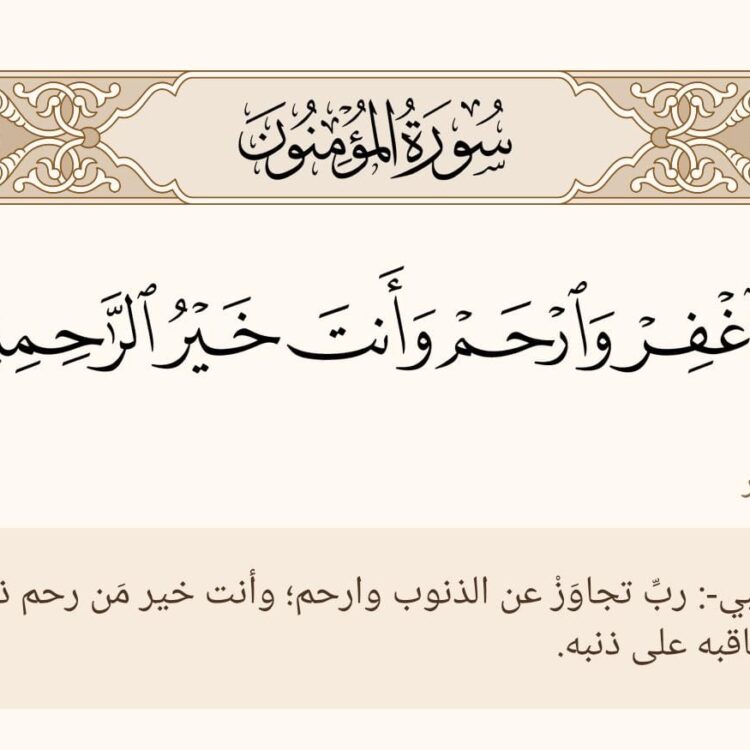 سُورَةُ المُؤْمِنُونَ
وَٱرْحَمْ وَأَنتَ خَيْرُ
ربِّ تجاوَزْ عن الذنوب وارحم؛ وأنت خير مَن رحم
على ذنبه.